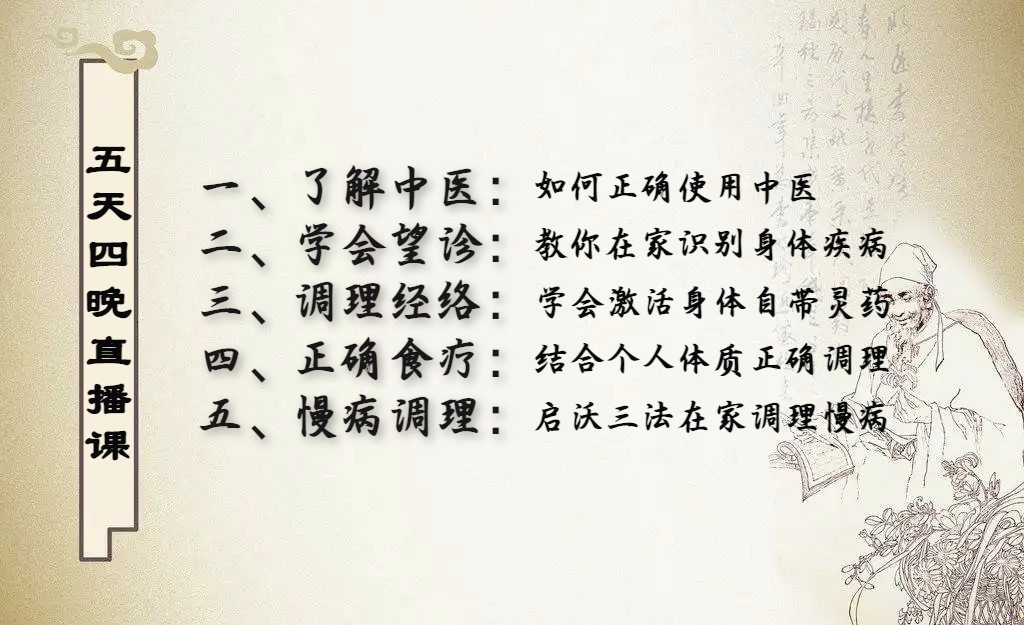 五天四晚直播课
一、了解中医：如何正确使用中医
二、学会望诊：教你在家识别身体疾病
三、调理经络：学会激活身体自带灵药
四、正确食疗：结合个人体质正确调理
五、慢病调理：启沃三法在家调理慢病